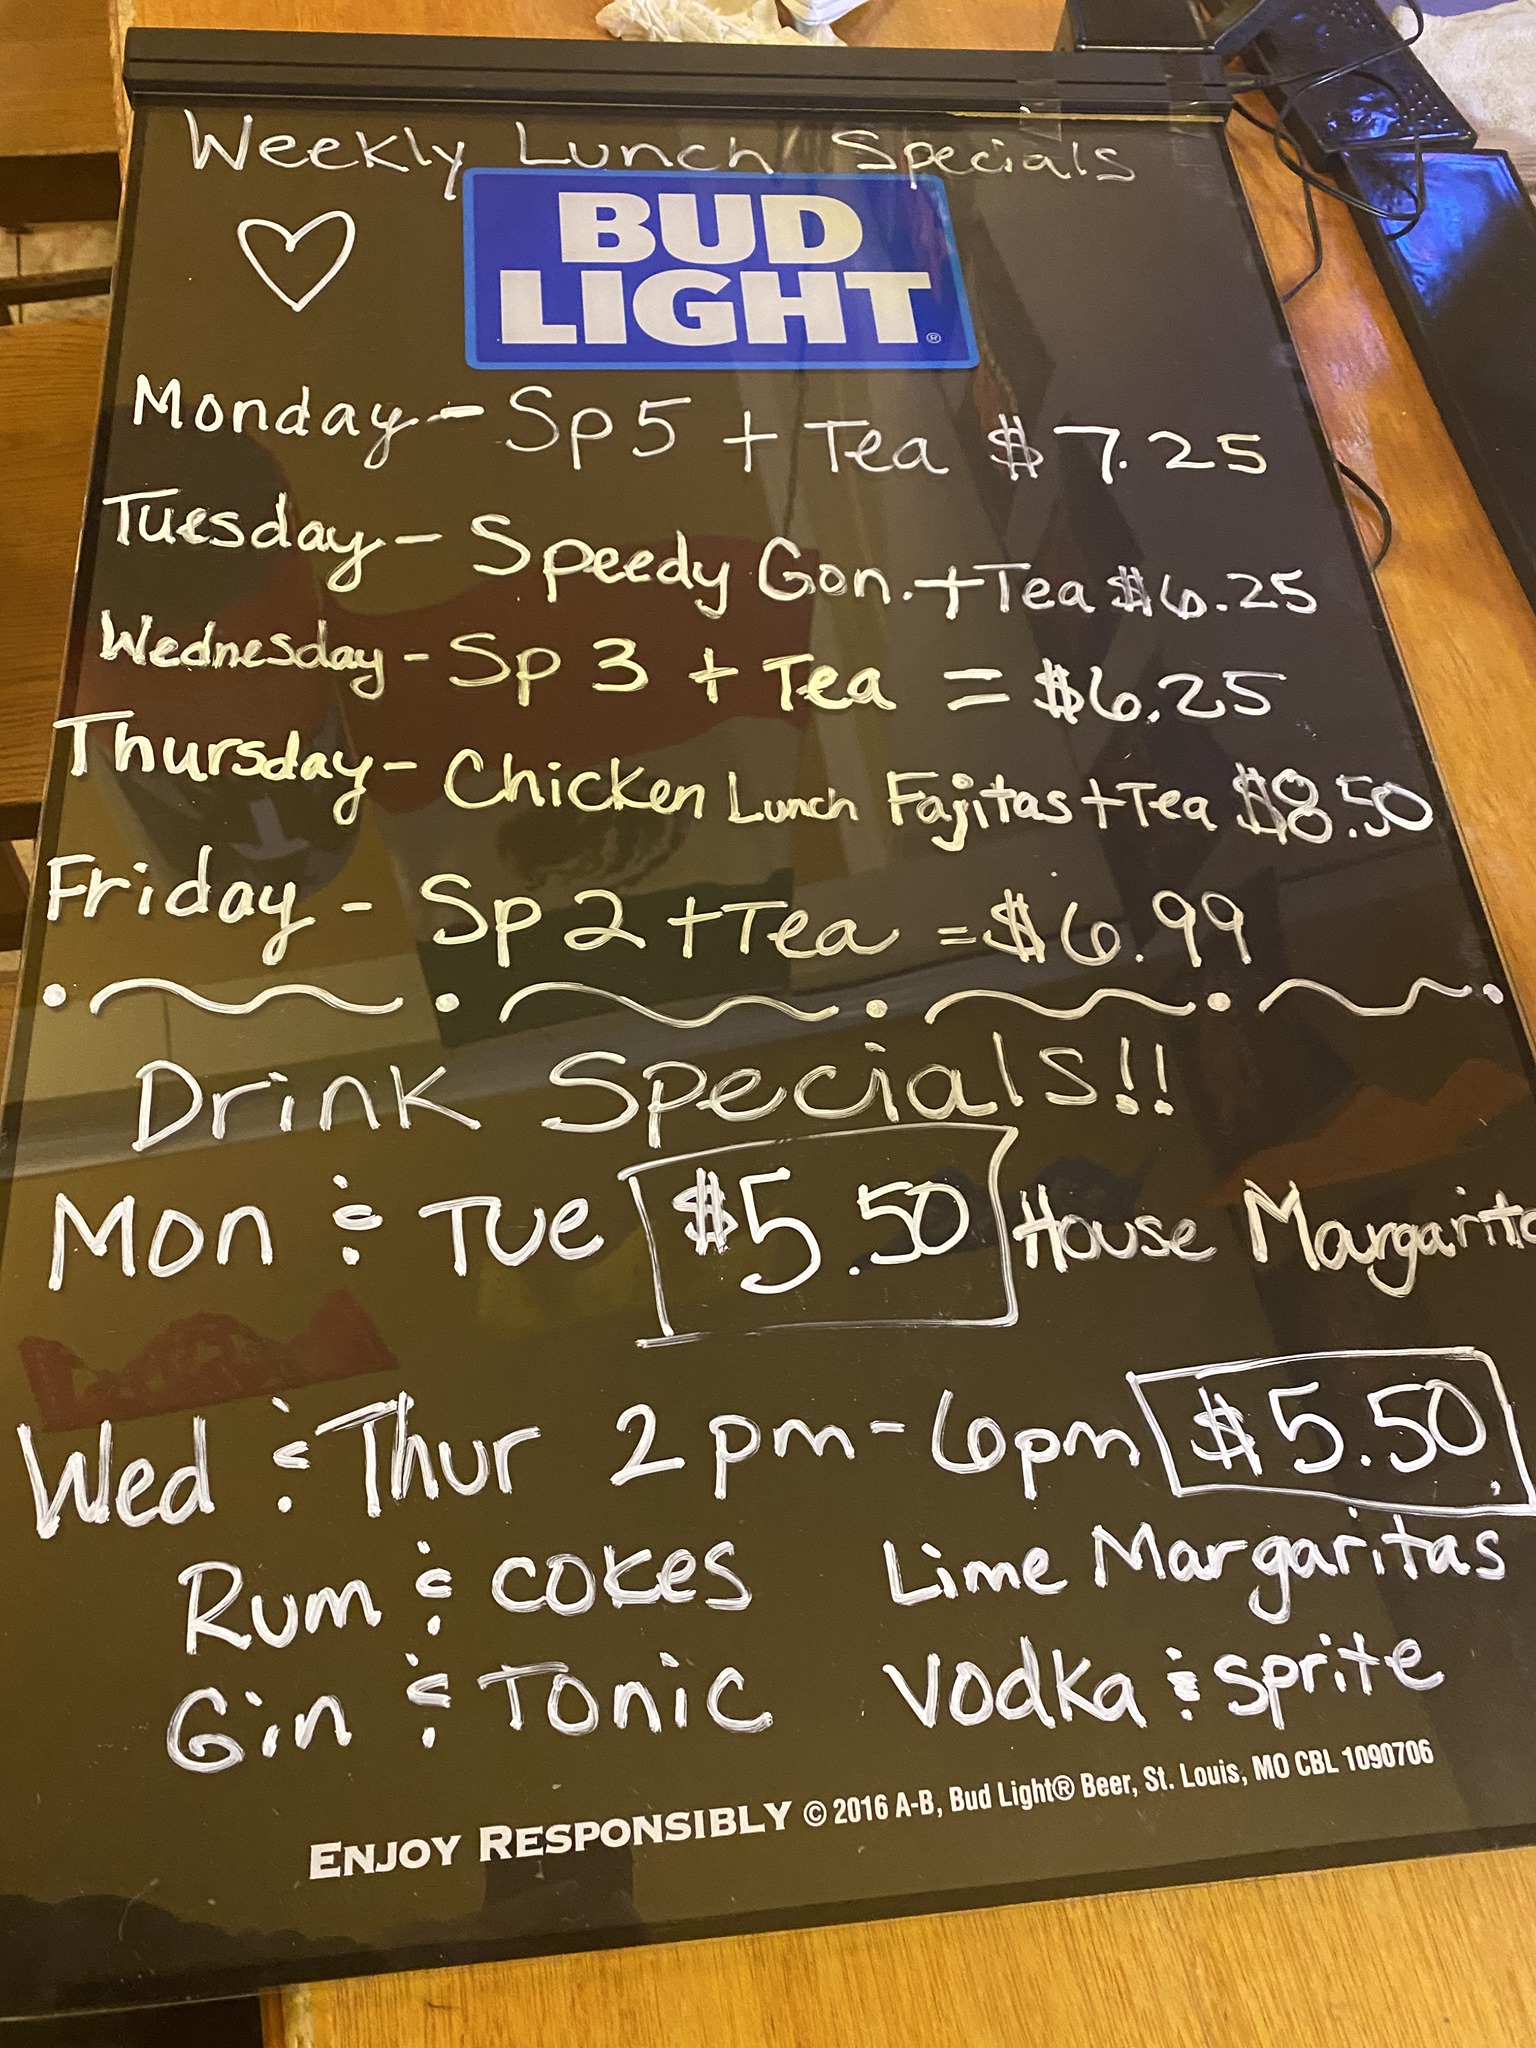 Weekly Lunch Specials
BUD
LIGHT®
Monday - Sp 5 + Tea $7.25
Tuesday - Speedy Gon. + Tea $6.25
Wednesday - Sp 3 + Tea = $6.25
Thursday - Chicken Lunch Fajitas + Tea $8.50
Friday - Sp 2 + Tea = $6.99
Drink Specials!!
Mon & Tue $5.50 House Margarita
Wed & Thur 2pm - 6pm $5.50
Rum & cokes Lime Margaritas
Gin & Tonic Vodka & sprite
ENJOY RESPONSIBLY © 2016 A-B, Bud Light® Beer, St. Louis, MO CBL 1090706